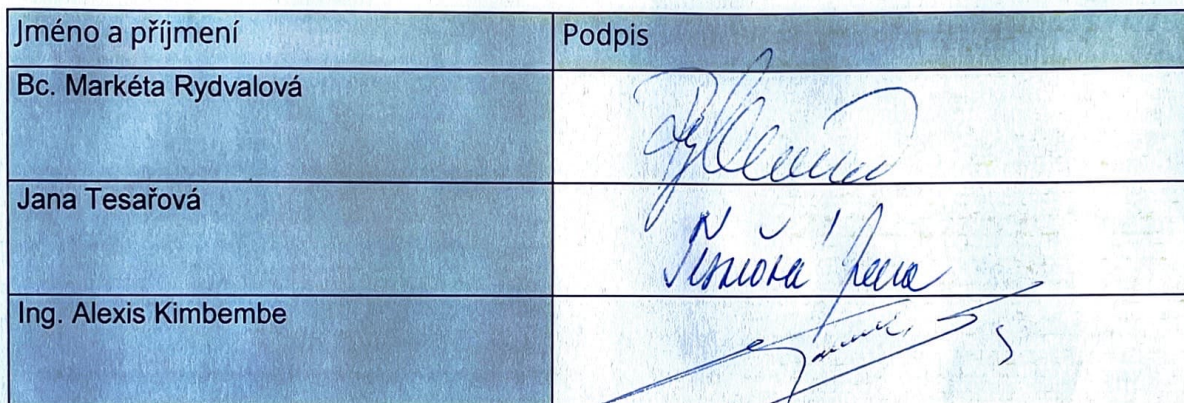 Jméno a příjmení
Podpis
Bc. Markéta Rydvalová
Jana Tesařová
Tesařová Jana
Ing. Alexis Kimbembe